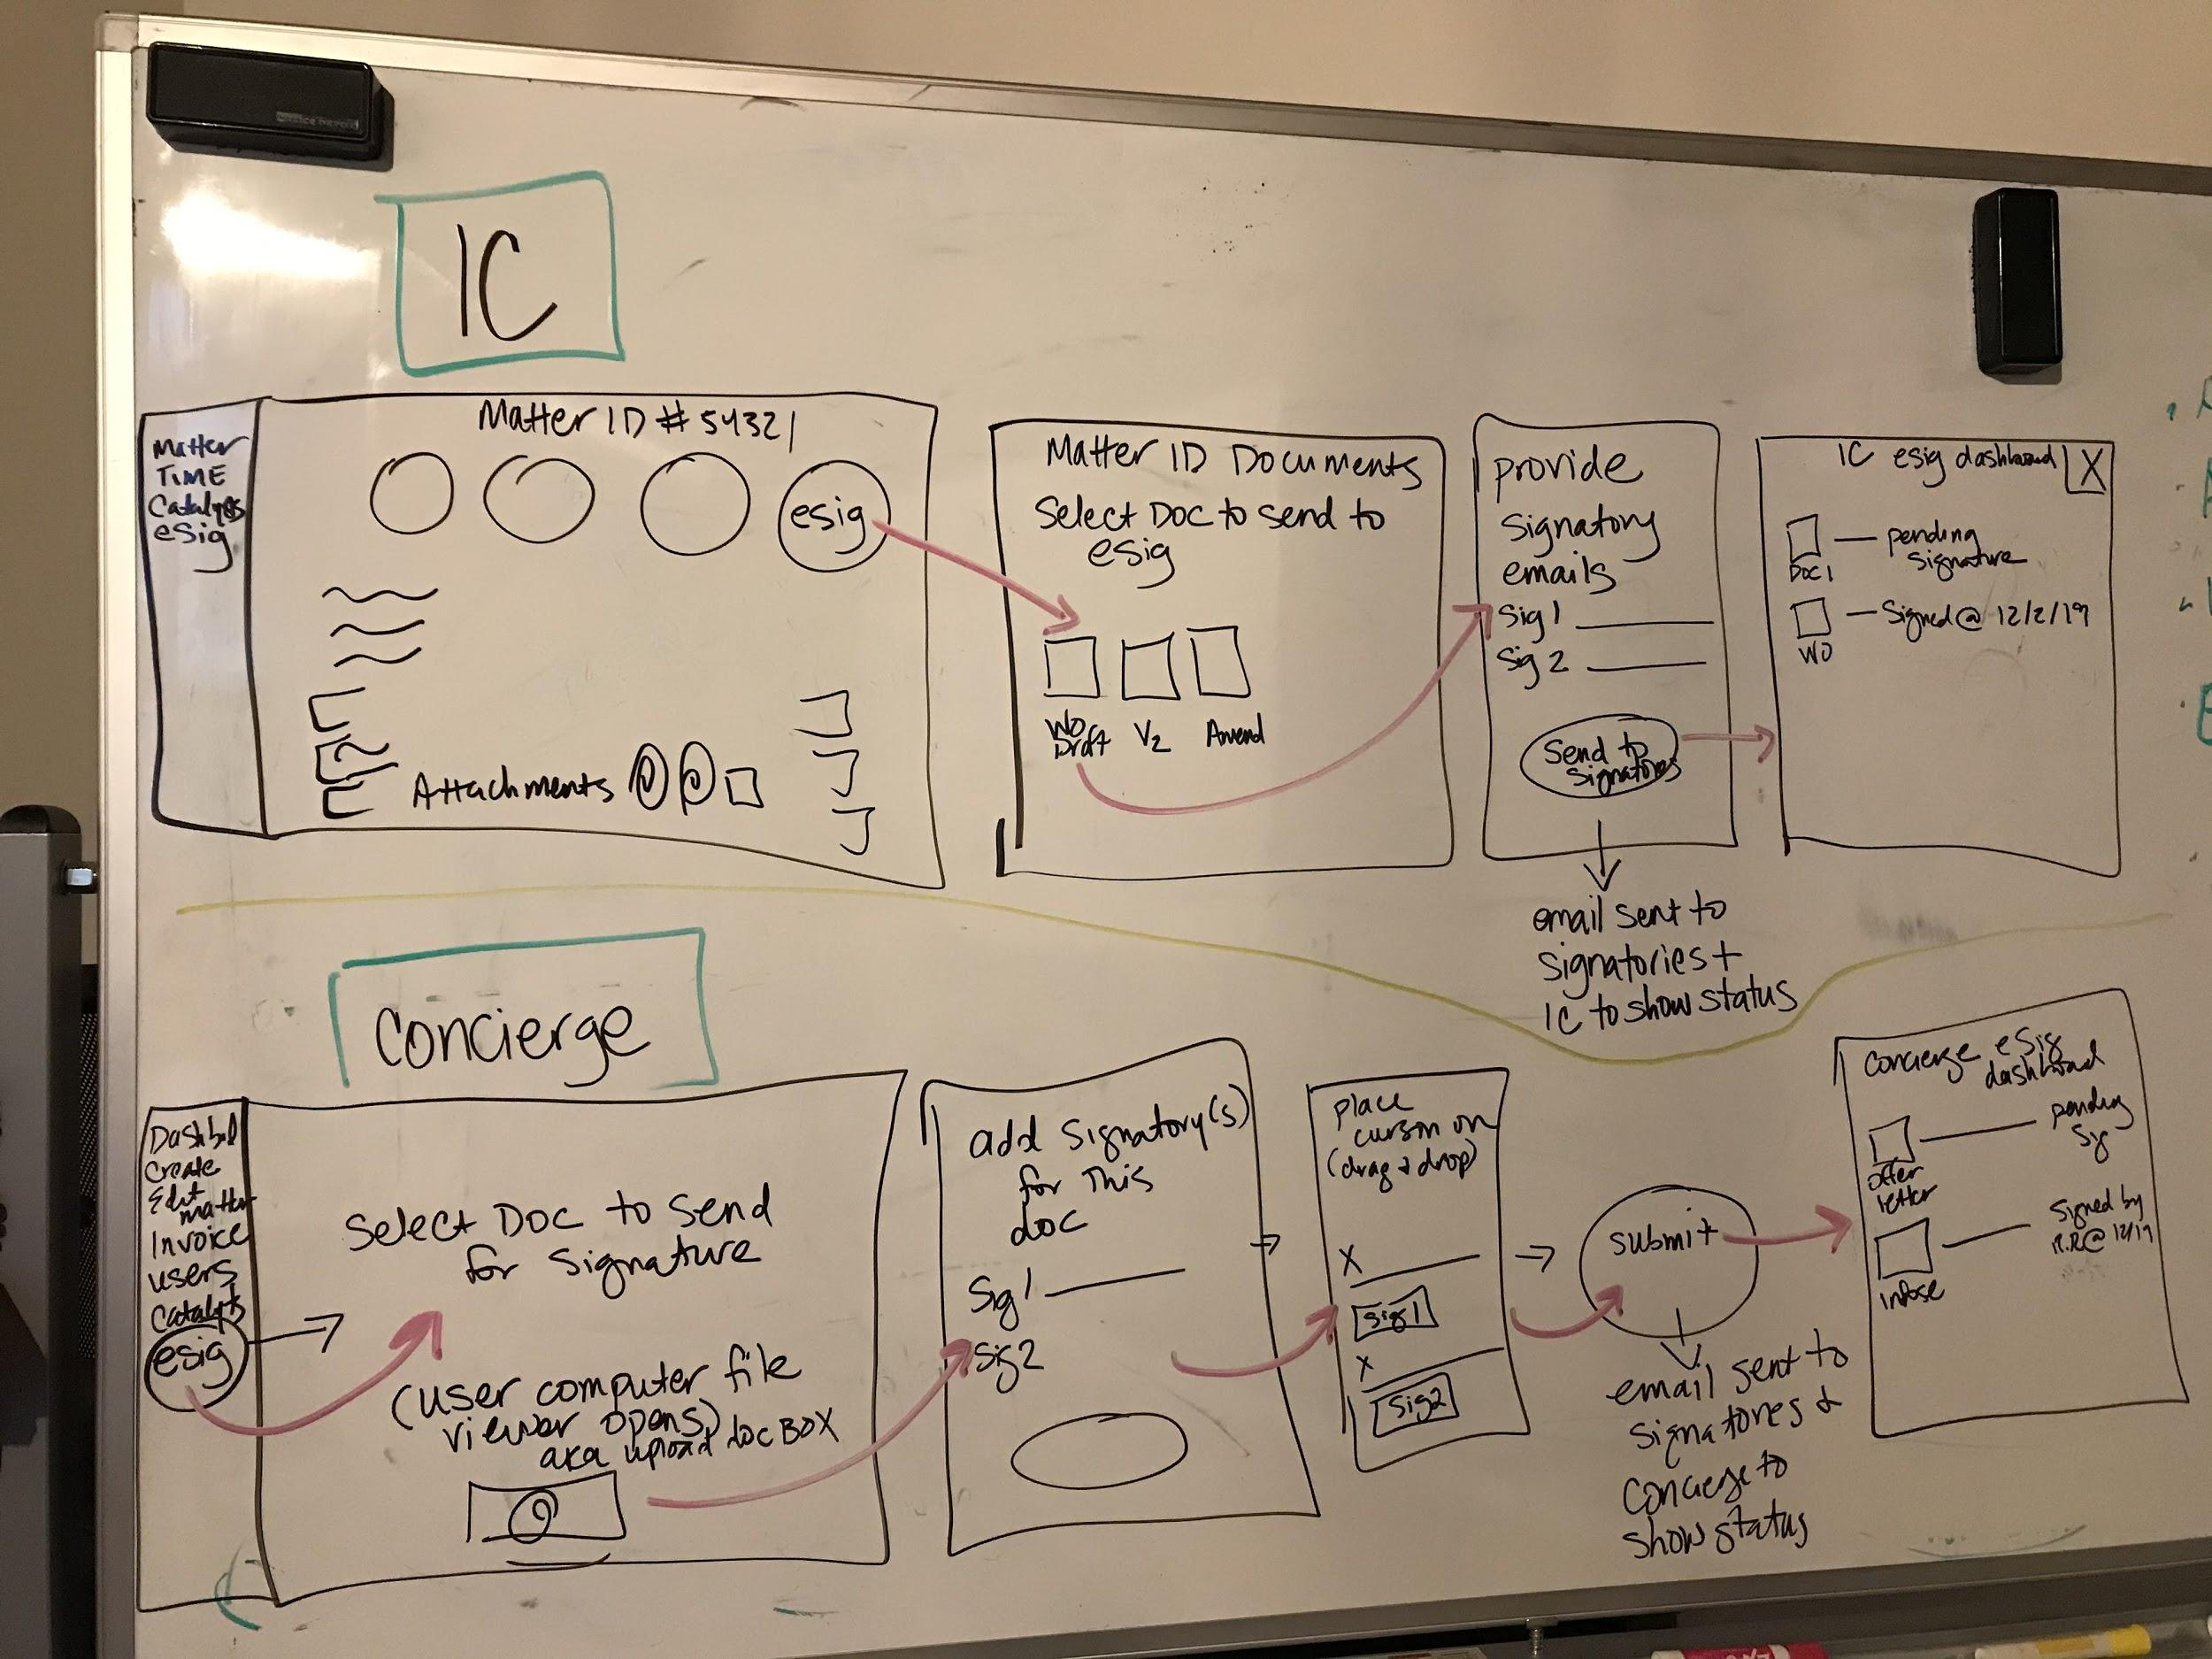 IC
Matter ID # 54321
Matter
TIME
Catalysts
esig
esig
Attachments
Matter ID Documents
Select Doc to send to
esig
WO
Draft
V2
Amend
provide
signatory
emails
Sig 1
Sig 2
Send to
signatories
email sent to
signatories +
IC to show status
IC esig dashboard
X
Doc 1
pending
signature
WO
Signed @ 12/2/19
Concierge
Dashbd
Create
Edit
matter
Invoice
users
Catalyts
esig
Select Doc to send
for signature
(user computer file
viewer opens)
aka upload doc BOX
add signatory(s)
for this
doc
Sig 1
Sig 2
place
cursor on
(drag & drop)
X
Sig 1
X
Sig 2
submit
email sent to
signatories &
concierge to
show status
concierge eSig
dashboard
offer
letter
pending
sig
Signed by
R.R @ 12/19